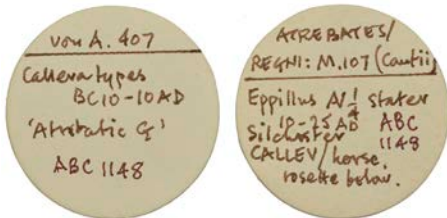 von A. 407
Calleva types
BC10-10AD
'Atrebatic G'
ABC 1148
ATREBATES/
REGNI: M.107 (Cantii)
Eppillus AV ¼ stater
10-25AD ABC
Silchester 1148
CALLEV/horse,
rosette below.